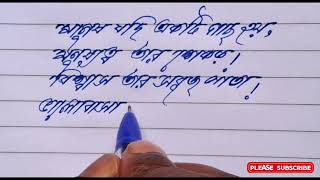 মানুষ যদি একটি গাছ হয়,
মনুষ্যত্ব তার শেকড়।
বিশ্বাস তার সবুজ পাতা।
ভালোবাসা
PLEASE SUBSCRIBE